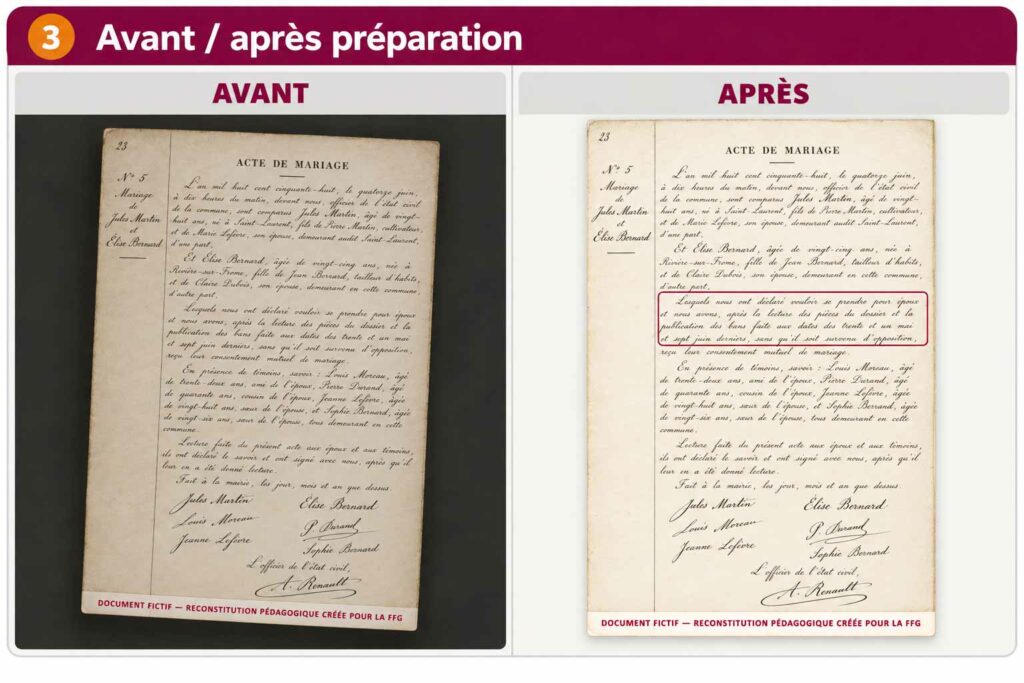 3 Avant / après préparation
AVANT
23
N° 5
Mariage
de
Jules Martin
et
Élise Bernard
ACTE DE MARIAGE
L'an mil huit cent cinquante-huit, le quatorze juin,
à dix heures du matin, devant nous, officier de l'état civil
de la commune, sont comparus Jules Martin, âgé de vingt-
huit ans, né à Saint-Laurent, fils de Pierre Martin, cultivateur,
et de Marie Lefèvre, son épouse, demeurant audit Saint-Laurent,
d'une part,
Et Élise Bernard, âgée de vingt-cinq ans, née à
Rivière-sur-Frome, fille de Jean Bernard, tailleur d'habits,
et de Claire Dubois, son épouse, demeurant en cette commune,
d'autre part,
Lesquels nous ont déclaré vouloir se prendre pour époux
et nous avons, après la lecture des pièces du dossier et la
publication des bans faite aux dates des trente et un mai
et sept juin derniers, sans qu'il soit survenu d'opposition,
reçu leur consentement mutuel de mariage.
En présence de témoins, savoir : Louis Moreau, âgé
de trente-deux ans, ami de l'époux, Pierre Durand, âgé
de quarante ans, cousin de l'époux, Jeanne Lefèvre, âgée
de vingt-huit ans, sœur de l'épouse, et Sophie Bernard, âgée
de vingt-six ans, sœur de l'épouse, tous demeurant en cette
commune.
Lecture faite du présent acte aux époux et aux témoins,
ils ont déclaré le savoir et ont signé avec nous, après qu'il
leur en a été donné lecture.
Fait à la mairie, les jour, mois et an que dessus.
Jules Martin Élise Bernard
Louis Moreau P. Durand
Jeanne Lefèvre Sophie Bernard
L'officier de l'état civil,
A. Renault
DOCUMENT FICTIF — RECONSTITUTION PÉDAGOGIQUE CRÉÉE POUR LA FFG
APRÈS
23
N° 5
Mariage
de
Jules Martin
et
Élise Bernard
ACTE DE MARIAGE
L'an mil huit cent cinquante-huit, le quatorze juin,
à dix heures du matin, devant nous, officier de l'état civil
de la commune, sont comparus Jules Martin, âgé de vingt-
huit ans, né à Saint-Laurent, fils de Pierre Martin, cultivateur,
et de Marie Lefèvre, son épouse, demeurant audit Saint-Laurent,
d'une part,
Et Élise Bernard, âgée de vingt-cinq ans, née à
Rivière-sur-Frome, fille de Jean Bernard, tailleur d'habits,
et de Claire Dubois, son épouse, demeurant en cette commune,
d'autre part,
Lesquels nous ont déclaré vouloir se prendre pour époux
et nous avons, après la lecture des pièces du dossier et la
publication des bans faite aux dates des trente et un mai
et sept juin derniers, sans qu'il soit survenu d'opposition,
reçu leur consentement mutuel de mariage.
En présence de témoins, savoir : Louis Moreau, âgé
de trente-deux ans, ami de l'époux, Pierre Durand, âgé
de quarante ans, cousin de l'époux, Jeanne Lefèvre, âgée
de vingt-huit ans, sœur de l'épouse, et Sophie Bernard, âgée
de vingt-six ans, sœur de l'épouse, tous demeurant en cette
commune.
Lecture faite du présent acte aux époux et aux témoins,
ils ont déclaré le savoir et ont signé avec nous, après qu'il
leur en a été donné lecture.
Fait à la mairie, les jour, mois et an que dessus.
Jules Martin Élise Bernard
Louis Moreau P. Durand
Jeanne Lefèvre Sophie Bernard
L'officier de l'état civil,
A. Renault
DOCUMENT FICTIF — RECONSTITUTION PÉDAGOGIQUE CRÉÉE POUR LA FFG